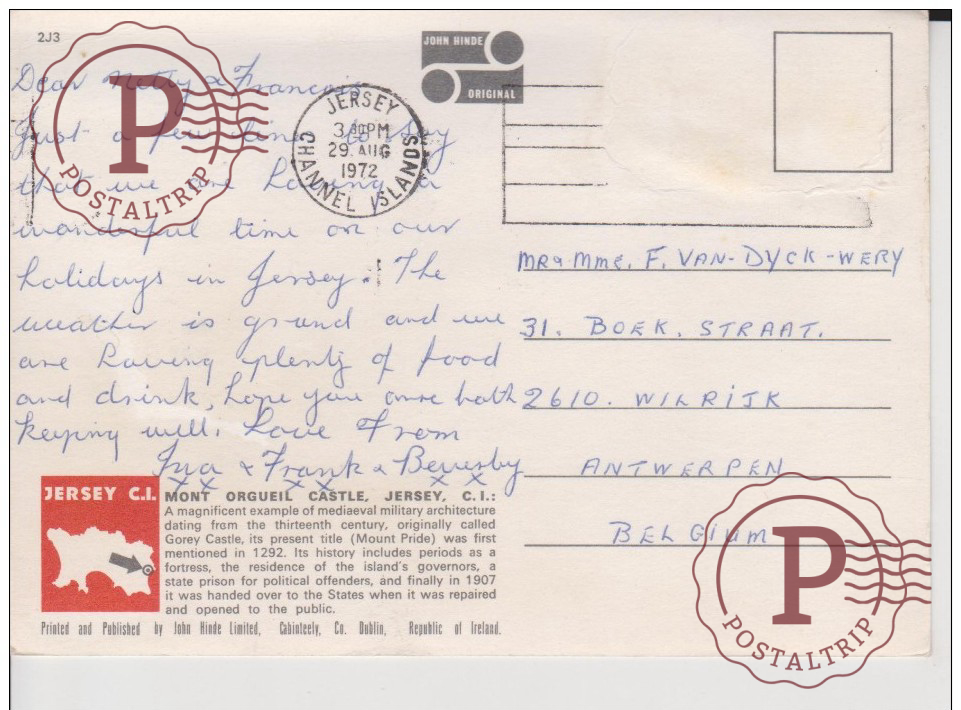 2J3
JOHN HINDE
ORIGINAL
JERSEY
3 30PM
29 AUG
1972
CHANNEL ISLANDS
Dear Netty & Francois
Just a few lines to say
that we are having a
wonderful time on our
holidays in Jersey. The
weather is grand and we
are having plenty of food
and drink, hope you are both
keeping well. Love From
& Frank & Beverby
x x x x x x
MR & MME. F. VAN-DYCK-WERY
31. BOEK. STRAAT.
2610. WILRIJK
ANTWERPEN
BELGIUM
JERSEY C.I.
MONT ORGUEIL CASTLE, JERSEY, C.I.:
A magnificent example of mediaeval military architecture
dating from the thirteenth century, originally called
Gorey Castle, its present title (Mount Pride) was first
mentioned in 1292. Its history includes periods as a
fortress, the residence of the island's governors, a
state prison for political offenders, and finally in 1907
it was handed over to the States when it was repaired
and opened to the public.
Printed and Published by John Hinde Limited, Cabinteely, Co. Dublin, Republic of Ireland.
P
POSTALTRIP
P
POSTALTRIP